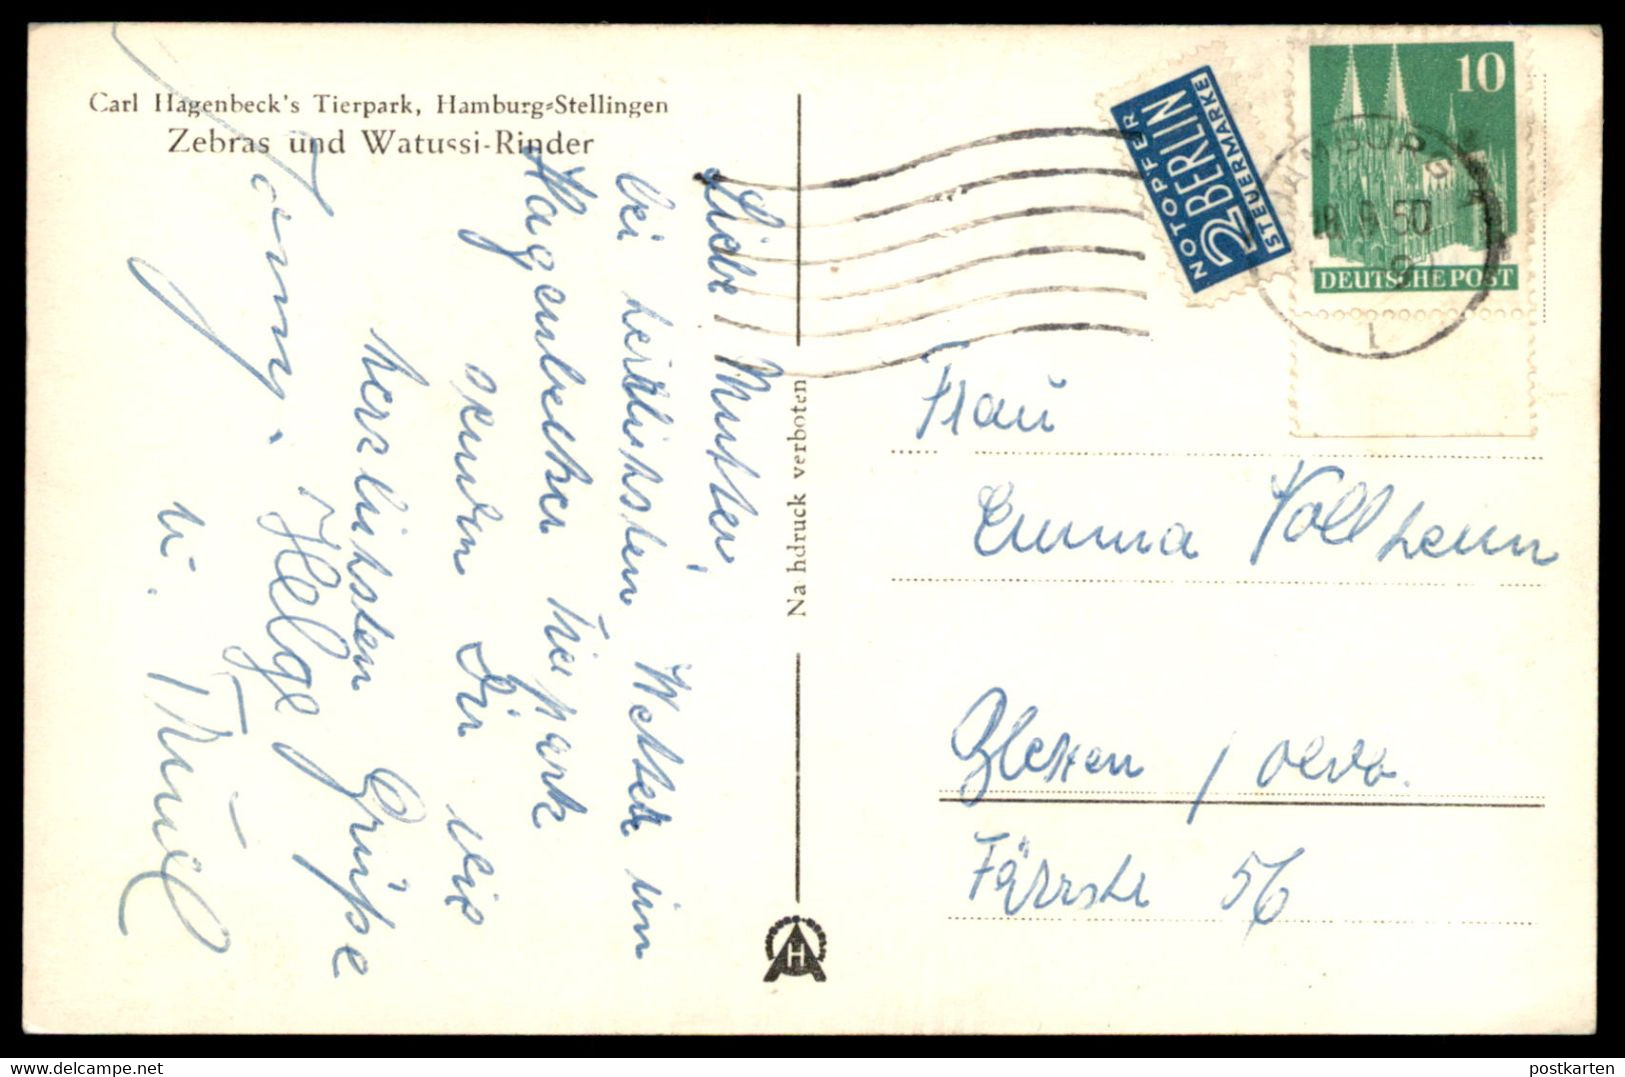 Carl Hagenbeck's Tierpark, Hamburg-Stellingen
Zebras und Watussi-Rinder
Liebe Mutter,
bei herrlichstem Wetter im
Hagenbecker Tierpark
senden Dir wir
herzlichsten Grüße
Helge
u.
Nachdruck verboten
H
NOTOPFER
2 BERLIN
STEUERMARKE
10
DEUTSCHE POST
HAMBURG
50
1
Frau
Emma Vollhenn
56
postkarten